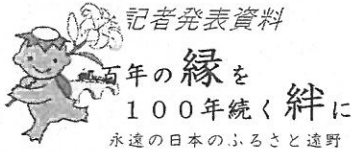 記者発表資料
百年の縁を
100年続く絆に
永遠の日本のふるさと遠野